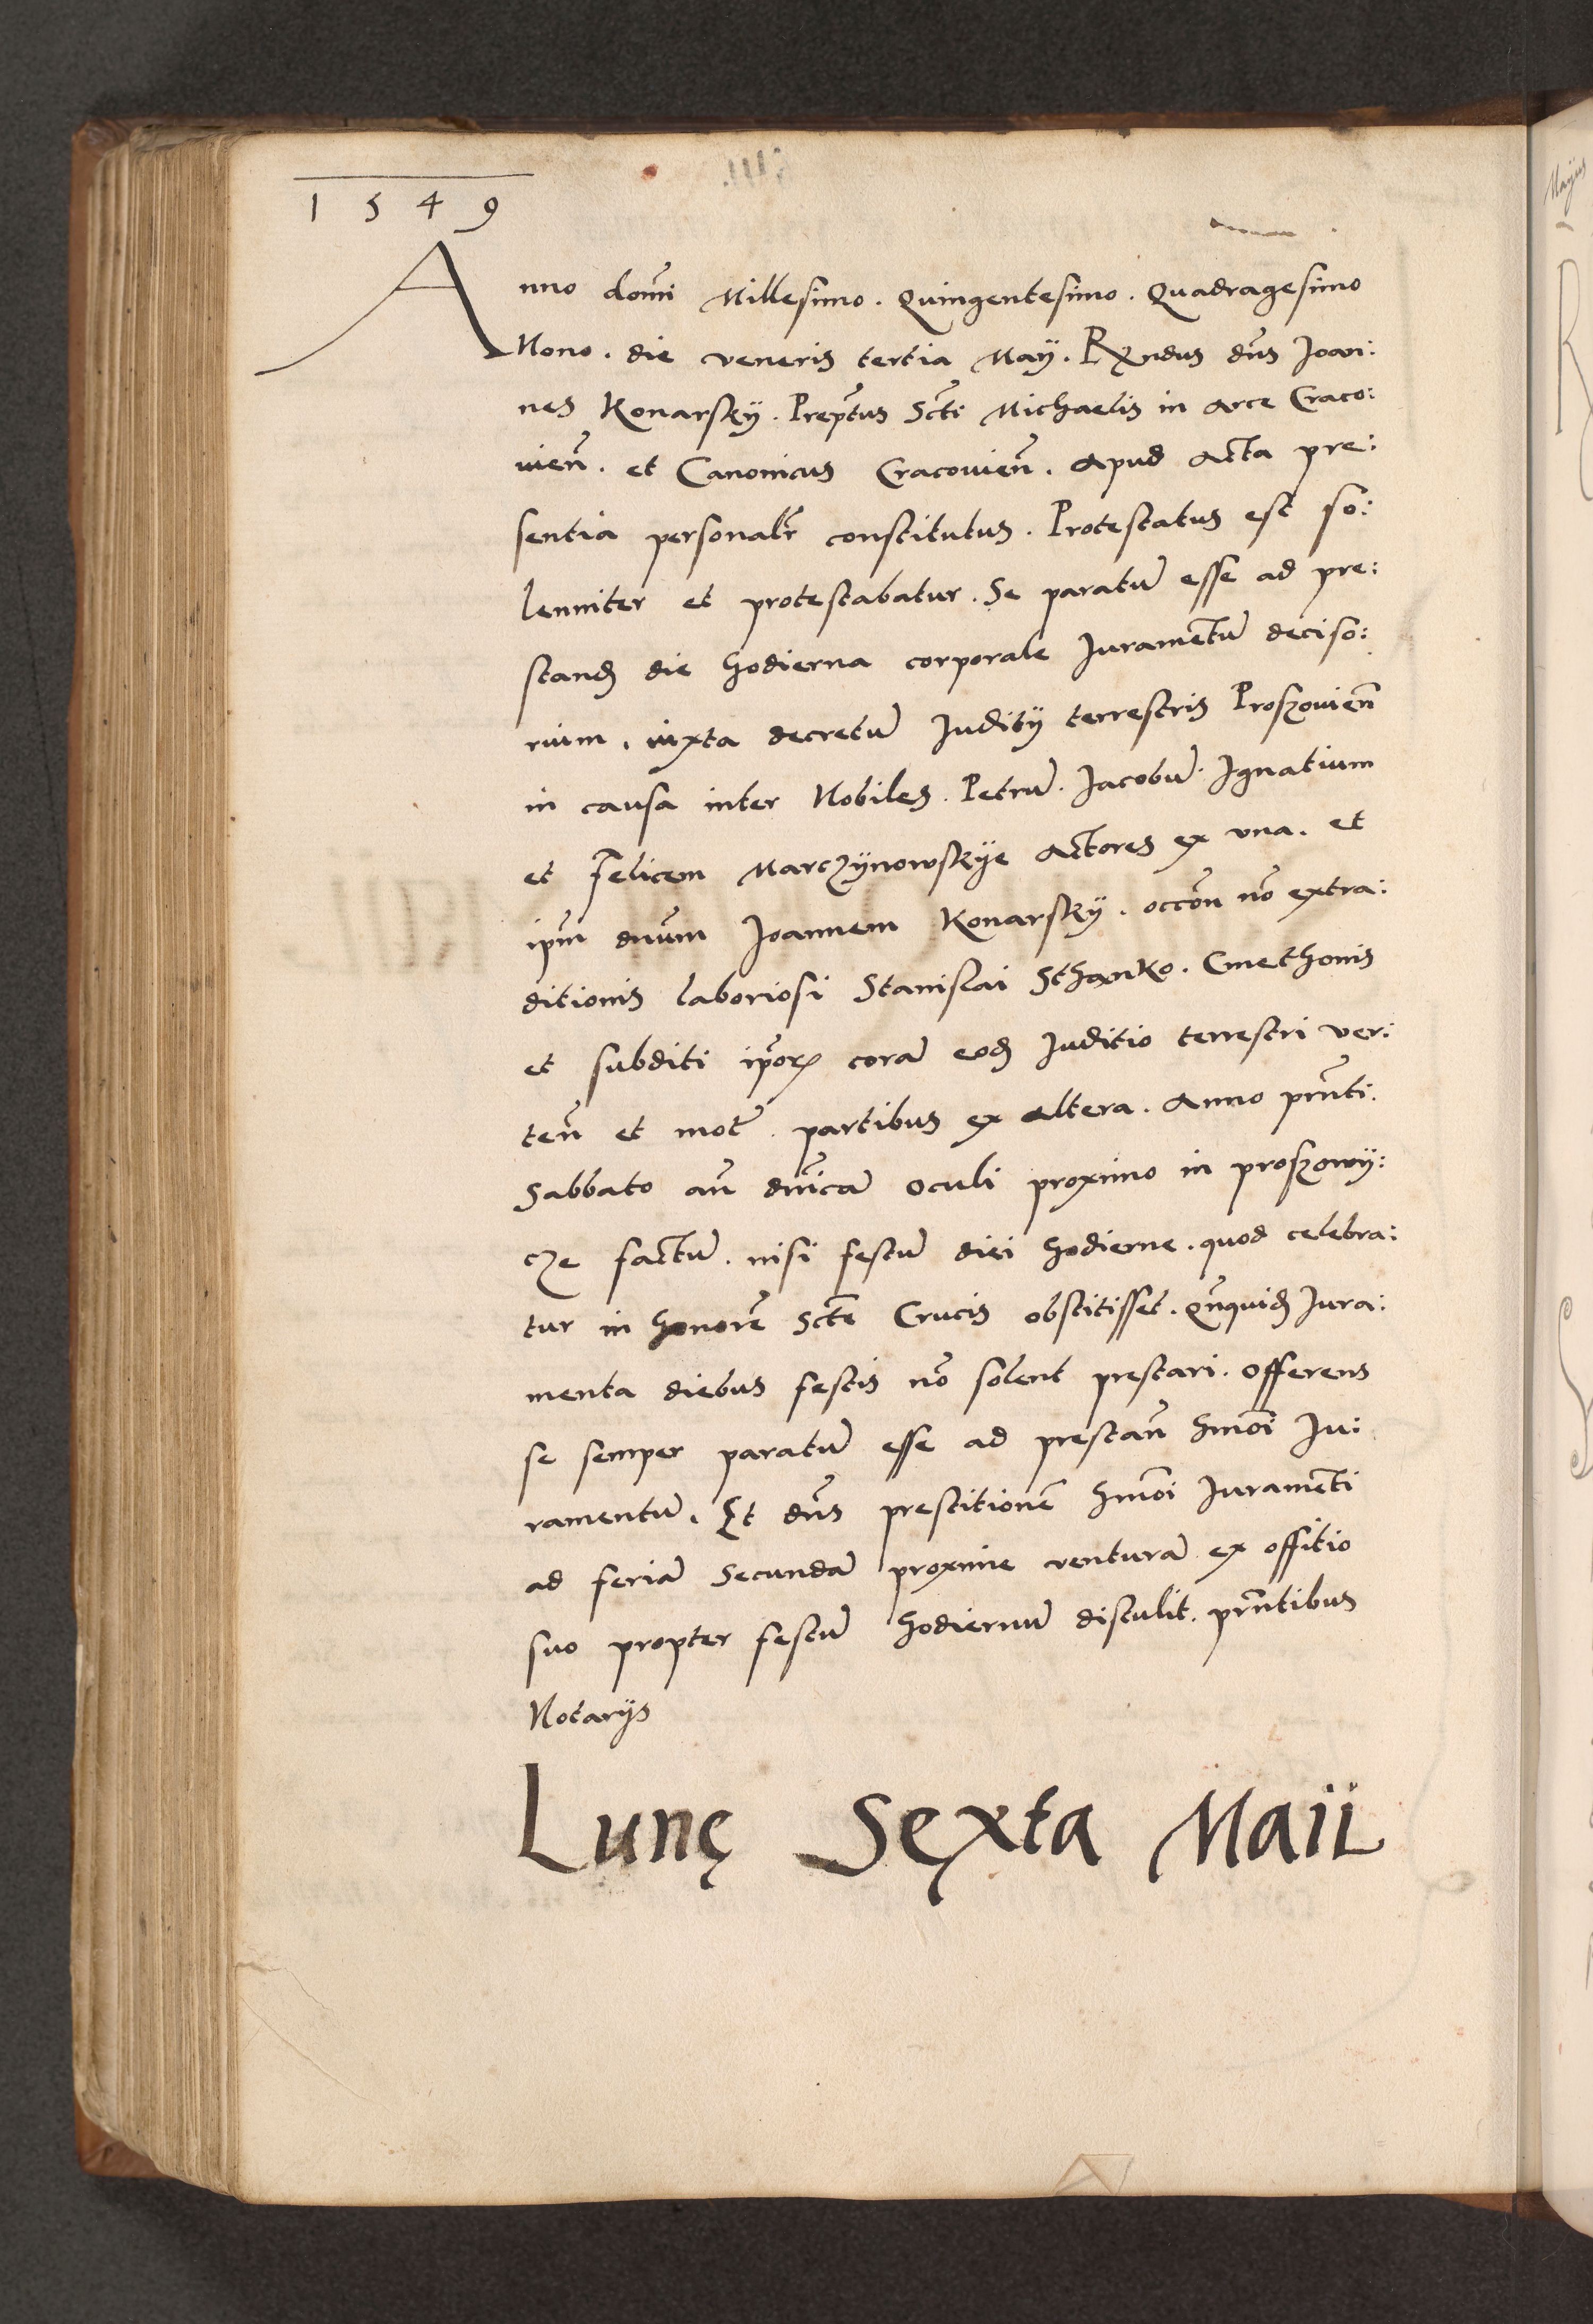 1549
Anno domi Millesimo. Quingentesimo. Quadragesimo
Nono. die veneris tertia May. Rxndus dns Joan:
nes Konarsky. Preptus Scti Michaelis in Arce Craco:
vien. et Canonicus Cracovien. Apud Acta pre:
sentia personaltr constitutus. Protestatus est so:
lenniter et protestabatur. Se paratu esse ad pre:
stand die hodierna corporale Juramentu deciso:
rium, iuxta decretu Juditij terrestris Proszovien
in causa inter Nobiles. Petru. Jacobu. Ignatium
et Felicem Marczynowskye Actores ex una. et
ipm dnum Joannem Konarsky. occon no extra:
ditionis laboriosi Stanislai Sthanko. Cmethonis
et subditi ipor cora eod Juditio terrestri ver:
ten et mot. partibus ex altera. Anno prnti.
Sabbato an dnica Oculi proximo in proszowy:
cze factu. nisi festu diei hodierne. quod celebra:
tur in honore Scte Crucis obstitisset. Qnquid Jura:
menta diebus festis no solent prestari. Offerens
se semper paratu esse ad prestan hmoi Ju:
ramentu. Et dns prestitione hmoi Juramenti
ad feria Secunda proxime ventura ex offitio
suo propter festu hodiernu distulit. prntibus
Notarijs
Lunę Sexta Maii